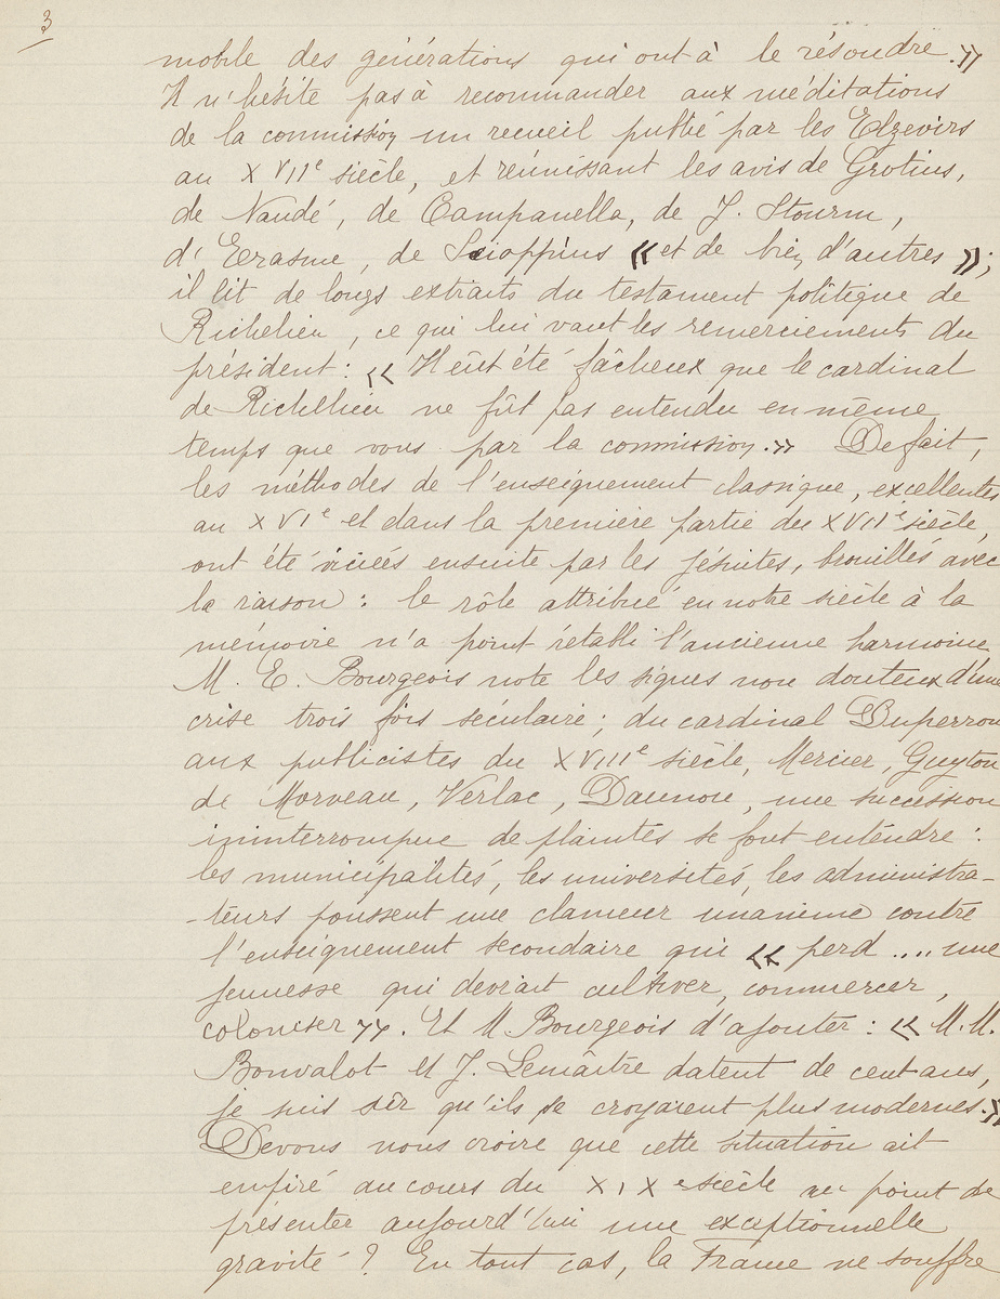 3
mobile des générations qui ont à le résoudre.»
Il n'hésite pas à recommander aux méditations
de la commission un recueil publié par les Elzevirs
au XVIIe siècle, et réunissant les avis de Grotius,
de Naudé, de Campanella, de J. Stourm,
d'Erasme, de Scioppius «et de bien d'autres»;
il lit de longs extraits du testament politique de
Richelieu, ce qui lui vaut les remerciements du
président: «Il eût été fâcheux que le cardinal
de Richelieu ne fût pas entendu en même
temps que vous par la commission.» De fait,
les méthodes de l'enseignement classique, excellentes
au XVIe et dans la première partie du XVIIe siècle,
ont été viciées ensuite par les jésuites, brouillés avec
la raison: le rôle attribué en notre siècle à la
mémoire n'a point rétabli l'ancienne harmonie.
M. E. Bourgeois note les signes non douteux d'une
crise trois fois séculaire; du cardinal Duperron
aux publicistes du XVIIIe siècle, Mercier, Guyton
de Morveau, Verlac, Daunou, une succession
ininterrompue de plaintes se font entendre:
les municipalités, les universités, les administra-
-teurs poussent une clameur unanime contre
l'enseignement secondaire qui « perd .... une
jeunesse qui devrait cultiver, commercer,
coloniser». Et M Bourgeois d'ajouter: « M.M.
Bonvalot et J. Lemaître datent de cent ans,
je suis sûr qu'ils se croyaient plus modernes.»
Devons nous croire que cette situation ait
empiré au cours du XIXe siècle au point de
présenter aujourd'hui une exceptionnelle
gravité? En tout cas, la France ne souffre